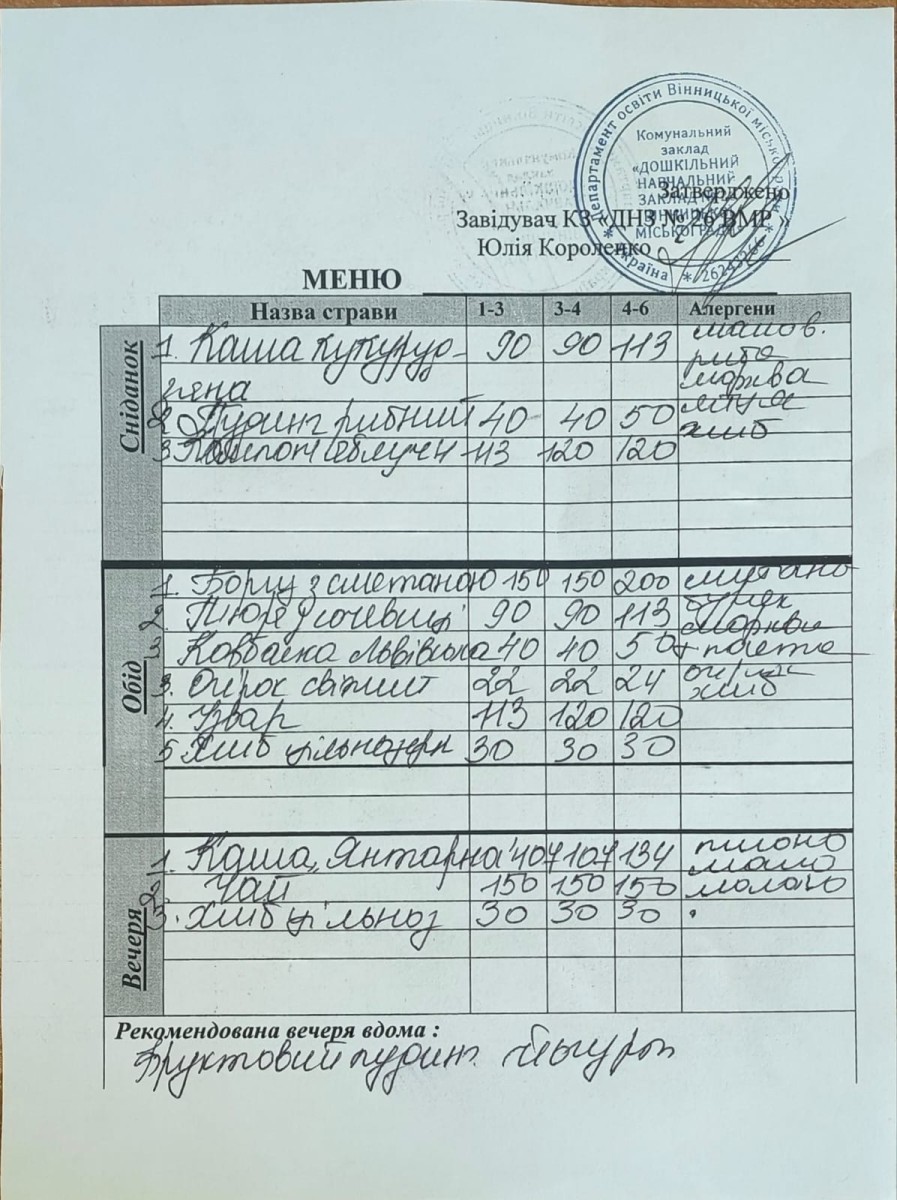 Департамент освіти Вінницької міської
Комунальний
заклад
«ДОШКІЛЬНИЙ
НАВЧАЛЬНИЙ
ЗАКЛАД
МІСЬКОЇ РАДИ»
* Україна * 26243266 *
Затверджено
Завідувач КЗ «ДНЗ № 26 ВМР »
Юлія Короленко
МЕНЮ
Назва страви 1-3 3-4 4-6 Алергени
Сніданок
1. Каша кукуруд- 90 90 113
зяна
риба
морква
2 Пудинг рибний 40 40 50
хліб
3. Компот яблучн 113 120 120
Обід
1. Борщ з сметаною 150 150 200 сметана
2. Пюре з сочевиці 90 90 113 буряк
морква
3 Ковбаска Львівська 40 40 50 т паста
3. Огірок свіжий 22 22 24 огірок
хліб
4. Узвар 113 120 120
5 Хліб цільнозерн 30 30 30
Вечеря
1. Каша „Янтарна" 107 107 134 пшоно
масло
2. Чай 150 150 150 молоко
3. Хліб цільноз 30 30 30
Рекомендована вечеря вдома :
Фруктовий пудинг. Йогурт